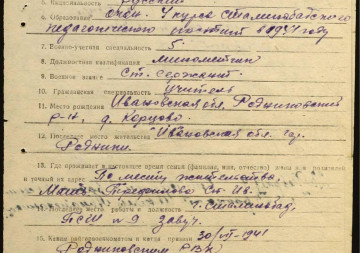 5. Национальность русский
6. Образование окон. 4 курса Сталинабадского
педагогического института в 1937 году
7. Военно-учетная специальность 5
8. Должностная квалификация минометчик
9. Военное звание ст. сержант
10. Гражданская специальность учитель
11. Место рождения Ивановская обл. Родниковский
р-н, д. Корцово
12. Последнее место жительства Ивановская обл. гор.
Родники
13. Где проживает в настоящее время семья (фамилия, имя, отчество) жены или родителей
и точный их адрес По месту жительства,
Мать Ст. Ив.
место работы и должность г. Сталинабад,
№ 9 Завуч.
15. Каким райвоенкоматом и когда призван 30/VII-1941
Родниковским РВК